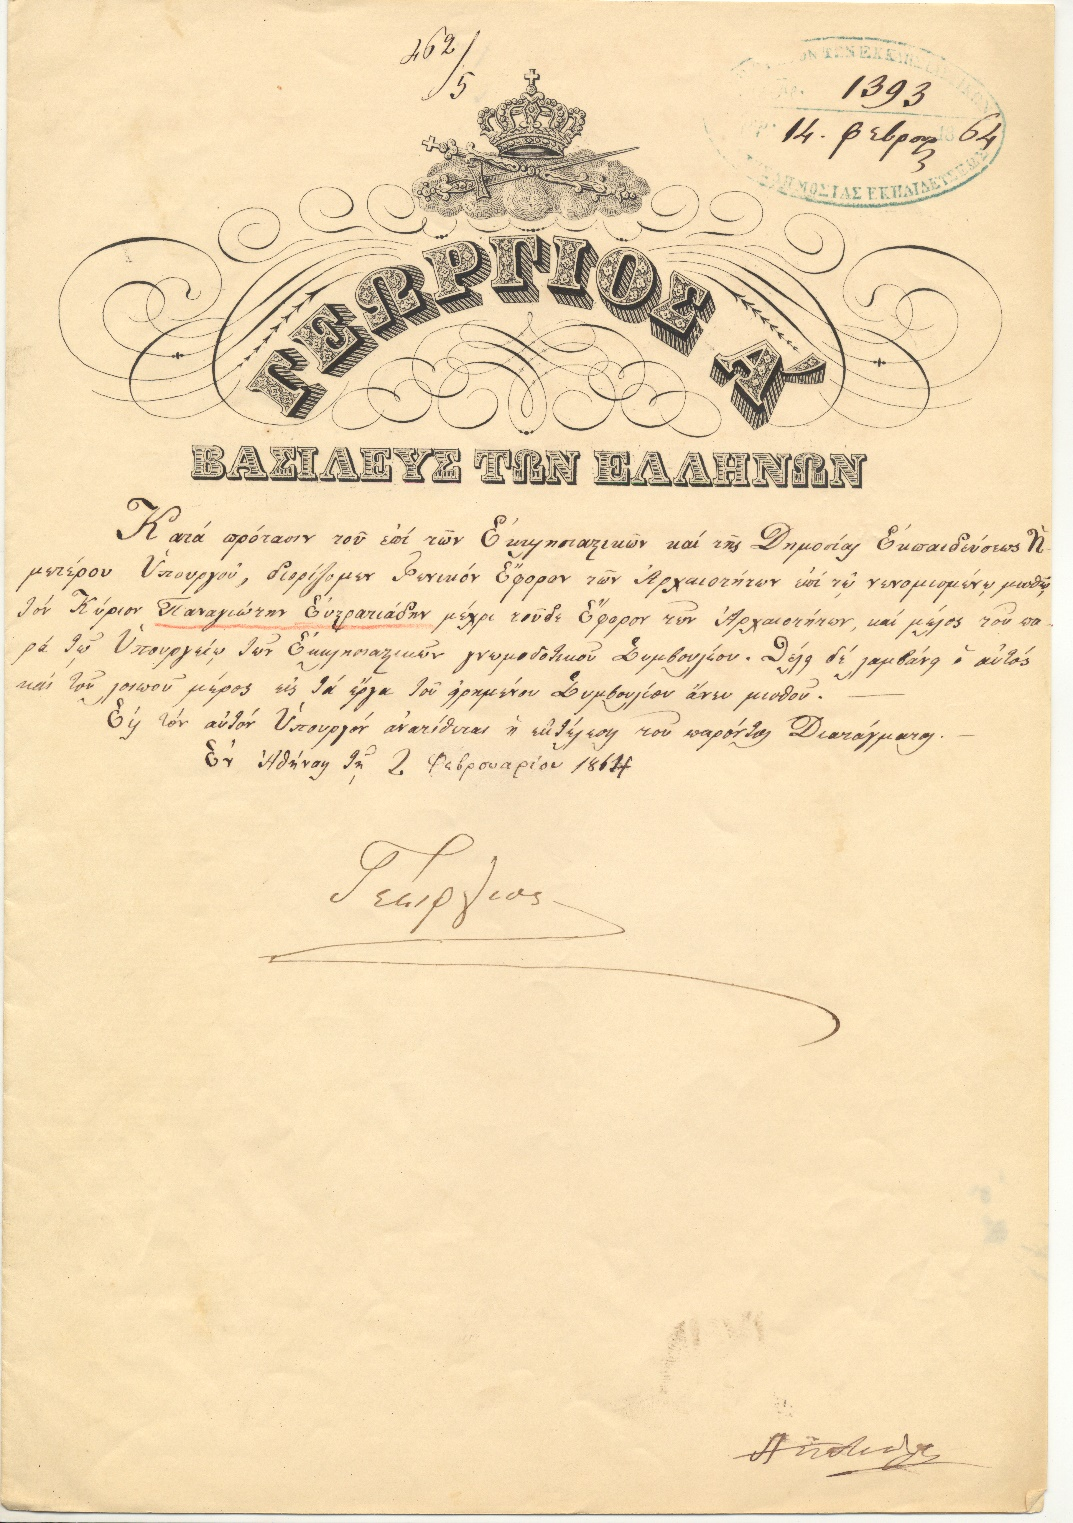 462/5
1393
14. Φεβρουρ 1864
ΤΩΝ ΕΚΚΛΗΣΙΑΣΤΙΚΩΝ
ΔΗΜΟΣΙΑΣ ΕΚΠΑΙΔΕΥΣΕΩΣ
ΓΕΩΡΓΙΟΣ Α'
ΒΑΣΙΛΕΥΣ ΤΩΝ ΕΛΛΗΝΩΝ
Κατά πρότασιν τοῦ ἐπί τῶν Ἐκκλησιαστικῶν καί τῆς Δημοσίας Ἐκπαιδεύσεως Ἡ-
μετέρου Ὑπουργοῦ, διορίζομεν Γενικόν Ἔφορον τῶν Ἀρχαιοτήτων ἐπί τῷ νενομισμένῳ μισθῷ
τόν Κύριον Παναγιώτην Εὐστρατιάδην μέχρι τοῦδε Ἔφορον τῶν Ἀρχαιοτήτων, καί μέλος τοῦ πα-
ρά τῷ Ὑπουργείῳ τῶν Ἐκκλησιαστικῶν γνωμοδοτικοῦ Συμβουλίου. Θέλει δέ λαμβάνει ὁ αὐτός
καί τοῦ λοιποῦ μέρος εἰς τά ἔργα τοῦ εἰρημένου Συμβουλίου ἄνευ μισθοῦ. —
Εἰς τόν αὐτόν Ὑπουργόν ἀνατίθεται ἡ ἐκτέλεσις τοῦ παρόντος Διατάγματος. —
Ἐν Ἀθήναις τῇ 2 Φεβρουαρίου 1864
Γεώργιος